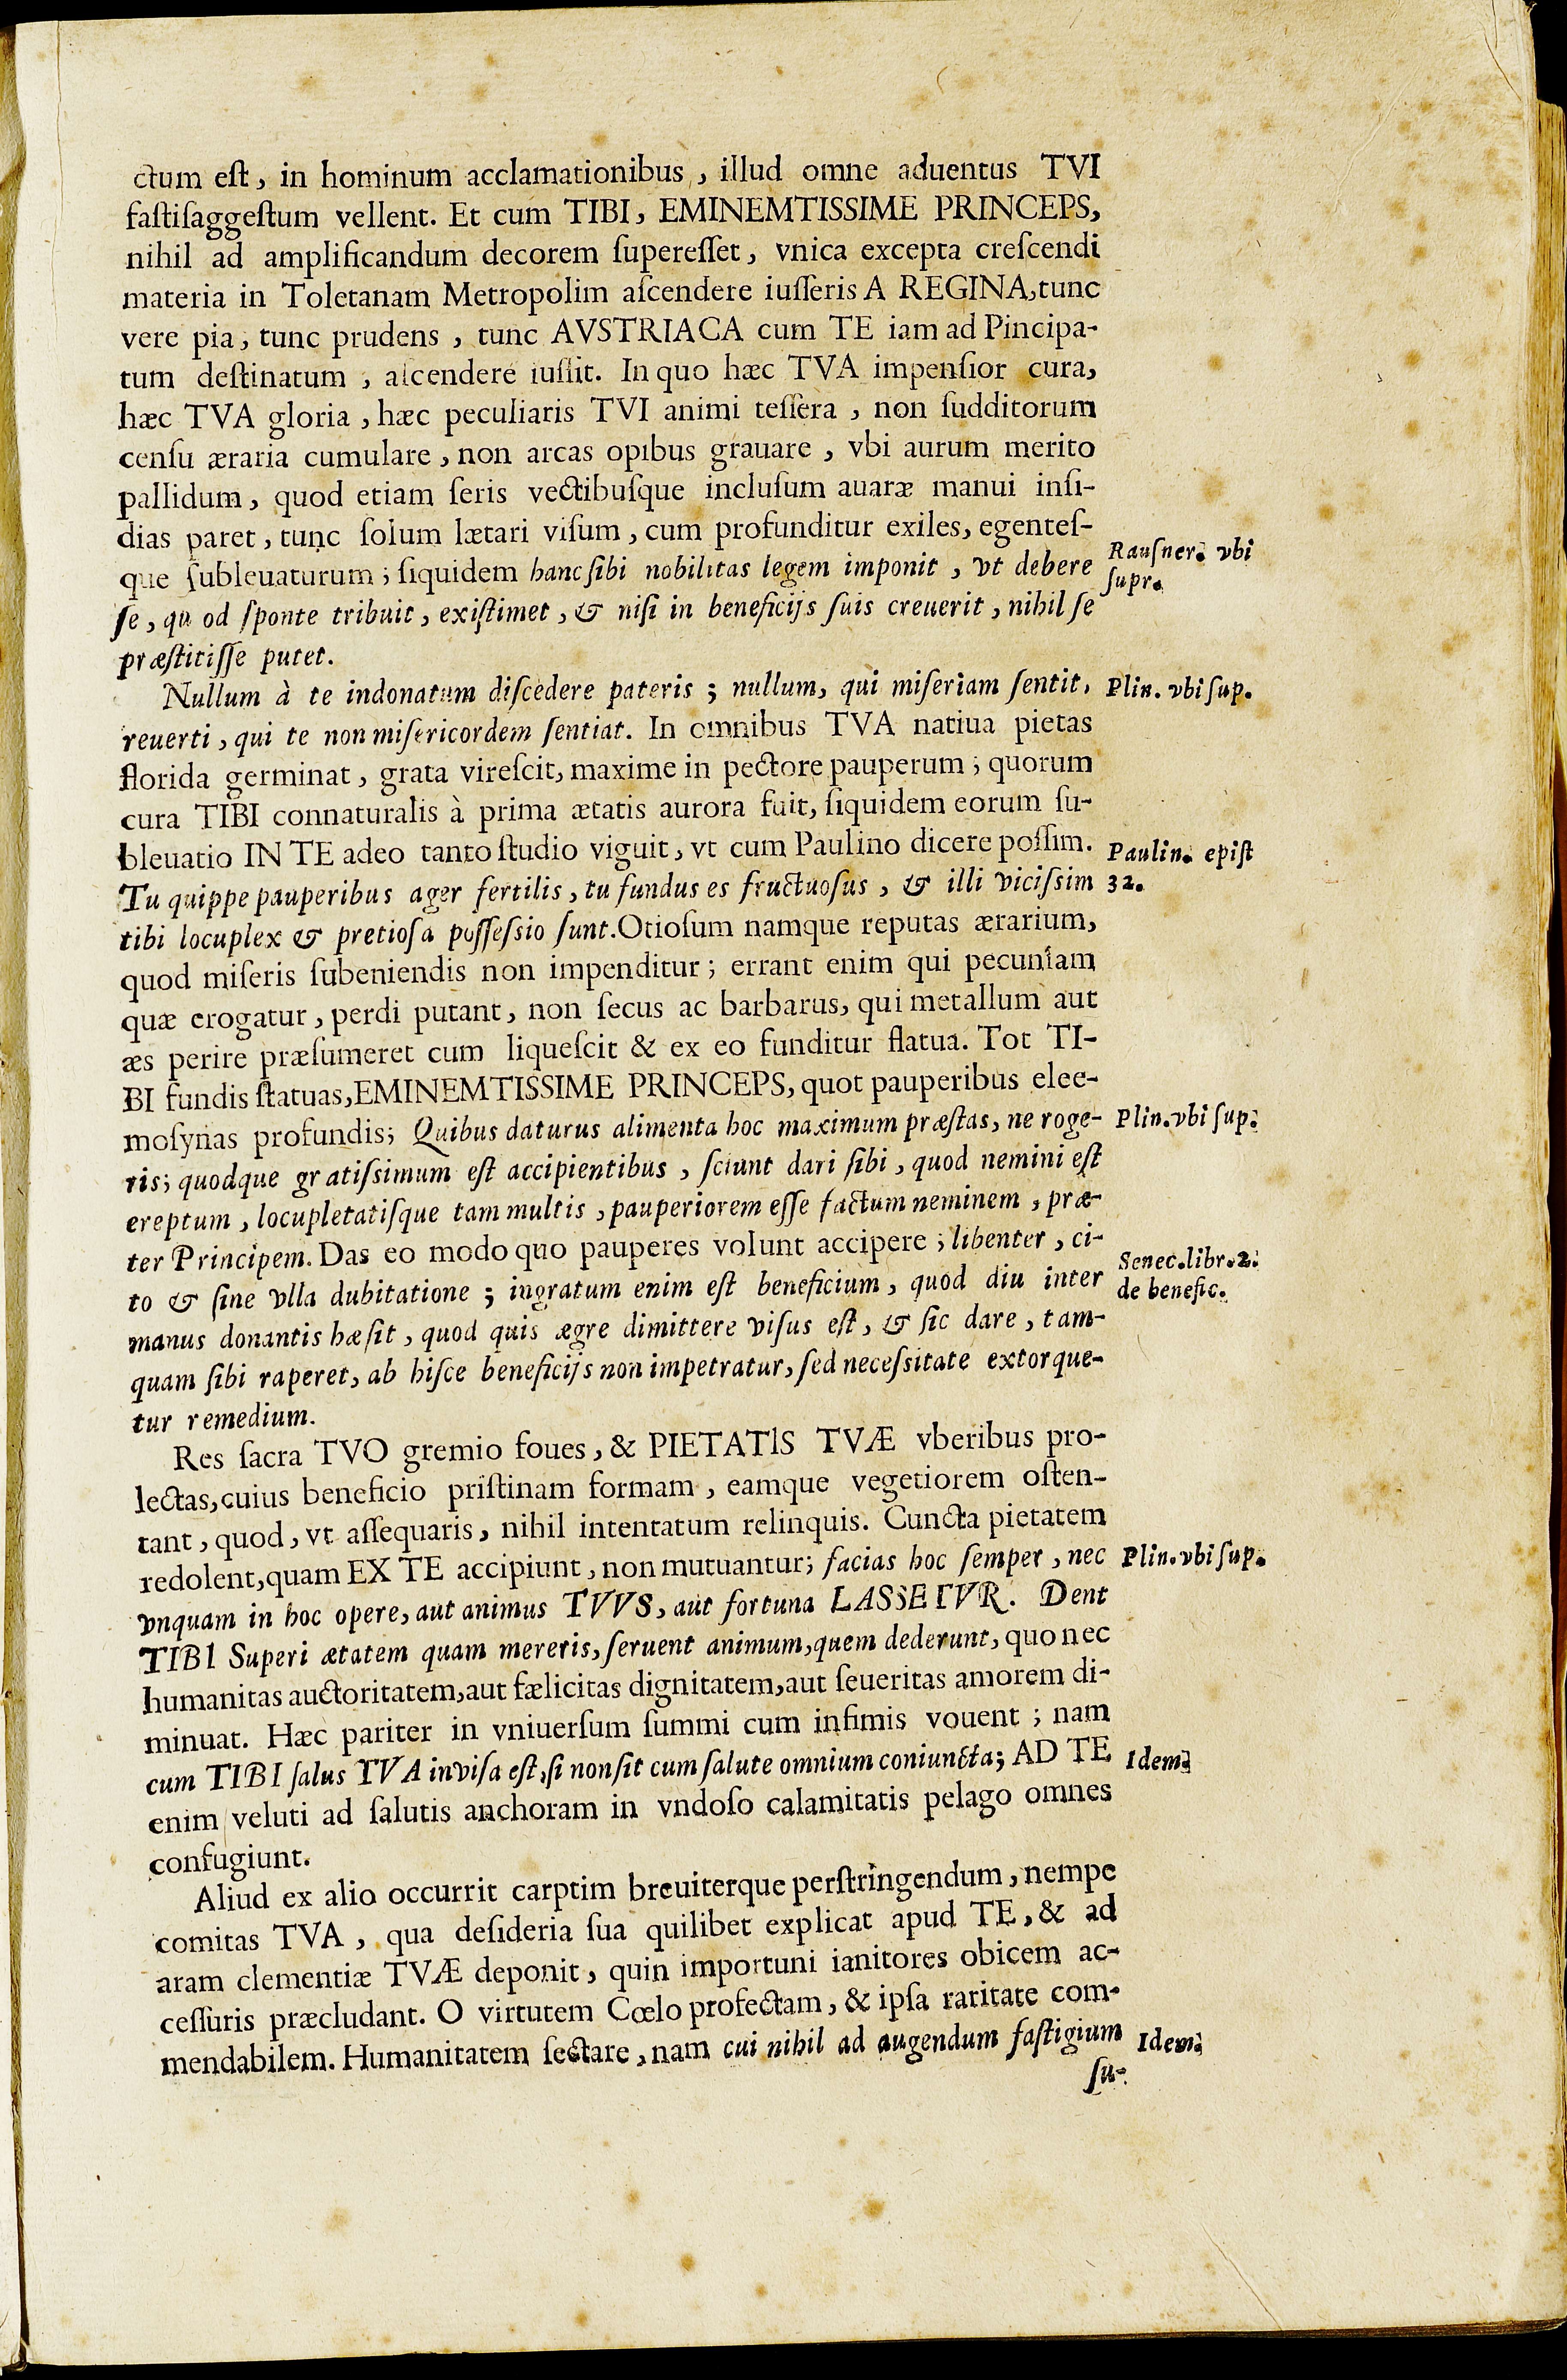 ctum eſt, in hominum acclamationibus, illud omne aduentus TVI
faſtiſaggeſtum vellent. Et cum TIBI, EMINEMTISSIME PRINCEPS,
nihil ad amplificandum decorem ſupereſſet, vnica excepta creſcendi
materia in Toletanam Metropolim aſcendere iuſſeris A REGINA, tunc
vere pia, tunc prudens, tunc AVSTRIACA cum TE iam ad Pincipa-
tum deſtinatum, aſcendere iuſſit. In quo hæc TVA impenſior cura,
hæc TVA gloria, hæc peculiaris TVI animi teſſera, non ſudditorum
cenſu æraria cumulare, non arcas opibus grauare, vbi aurum merito
pallidum, quod etiam ſeris vectibuſque incluſum auaræ manui inſi-
dias paret, tunc ſolum lætari viſum, cum profunditur exiles, egenteſ-
que ſubleuaturum; ſiquidem hanc ſibi nobilitas legem imponit, vt debere
Rauſner. vbi
ſupr.
ſe, qu od ſponte tribuit, exiſtimet, & niſi in beneficijs ſuis creuerit, nihil ſe
præſtitiſſe putet.
Nullum à te indonatum diſcedere pateris; nullum, qui miſeriam ſentit,
Plin. vbi ſup.
reuerti, qui te non miſericordem ſentiat. In omnibus TVA natiua pietas
florida germinat, grata vireſcit, maxime in pectore pauperum; quorum
cura TIBI connaturalis à prima ætatis aurora fuit, ſiquidem eorum ſu-
bleuatio IN TE adeo tanto ſtudio viguit, vt cum Paulino dicere poſſim.
Paulin. epiſt
32.
Tu quippe pauperibus ager fertilis, tu fundus es fructuoſus, & illi viciſsim
tibi locuplex & pretioſa poſſeſsio ſunt. Otioſum namque reputas ærarium,
quod miſeris ſubeniendis non impenditur; errant enim qui pecuniam
quæ erogatur, perdi putant, non ſecus ac barbarus, qui metallum aut
æs perire præſumeret cum liqueſcit & ex eo funditur ſtatua. Tot TI-
BI fundis ſtatuas, EMINEMTISSIME PRINCEPS, quot pauperibus elee-
moſynas profundis; Quibus daturus alimenta hoc maximum præſtas, ne roge-
Plin. vbi ſup.
ris; quodque gr atiſsimum eſt accipientibus, ſciunt dari ſibi, quod nemini eſt
ereptum, locupletatiſque tam multis, pauperiorem eſſe factum neminem, præ-
ter Principem. Das eo modo quo pauperes volunt accipere; libenter, ci-
Senec. libr. 2.
de benefic.
to & ſine vlla dubitatione; ingratum enim eſt beneficium, quod diu inter
manus donantis hæſit, quod quis ægre dimittere viſus eſt, & ſic dare, tam-
quam ſibi raperet, ab hiſce beneficijs non impetratur, ſed neceſsitate extorque-
tur remedium.
Res ſacra TVO gremio foues, & PIETATIS TVÆ vberibus pro-
lectas, cuius beneficio priſtinam formam, eamque vegetiorem oſten-
tant, quod, vt aſſequaris, nihil intentatum relinquis. Cuncta pietatem
redolent, quam EX TE accipiunt, non mutuantur; facias hoc ſemper, nec
Plin. vbi ſup.
vnquam in hoc opere, aut animus TVVS, aut fortuna LASSETVR. Dent
TIBI Superi ætatem quam mereris, ſeruent animum, quem dederunt, quo nec
humanitas auctoritatem, aut fælicitas dignitatem, aut ſeueritas amorem di-
minuat. Hæc pariter in vniuerſum ſummi cum infimis vouent; nam
cum TIBI ſalus TVA inviſa eſt, ſi non ſit cum ſalute omnium coniuncta; AD TE
Idem.
enim veluti ad ſalutis anchoram in vndoſo calamitatis pelago omnes
confugiunt.
Aliud ex alio occurrit carptim breuiterque perſtringendum, nempe
comitas TVA, qua deſideria ſua quilibet explicat apud TE, & ad
aram clementiæ TVÆ deponit, quin importuni ianitores obicem ac-
ceſſuris præcludant. O virtutem Cœlo profectam, & ipſa raritate com-
mendabilem. Humanitatem ſectare, nam cui nihil ad augendum faſtigium
Idem.
ſu-